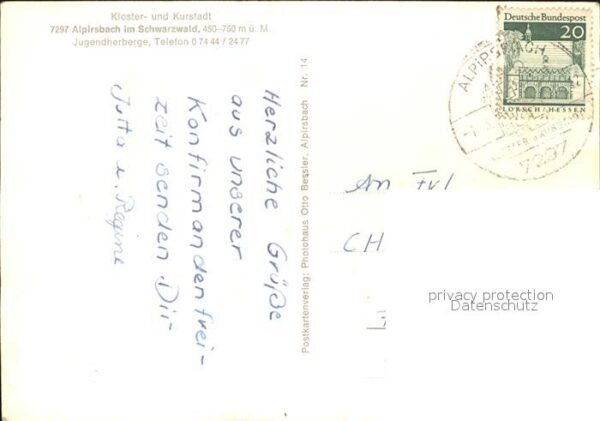 Kloster- und Kurstadt
7297 Alpirsbach im Schwarzwald, 450-750 m ü. M.
Jugendherberge, Telefon 0 74 44 / 24 77
Herzliche Grüße
aus unserer
Konfirmandenfrei-
zeit senden Dir
Jutta u. Regine
Postkartenverlag: Photohaus Otto Bessler, Alpirsbach Nr. 14
Deutsche Bundespost
20
LORSCH/HESSEN
ALPIRSBACH
7297
An Frl
CH
privacy protection
Datenschutz